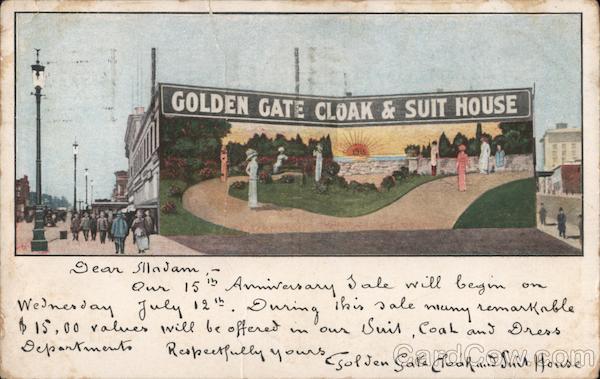 GOLDEN GATE CLOAK & SUIT HOUSE
Dear Madam,-
Our 15th Anniversary Sale will begin on
Wednesday July 12th. During this sale many remarkable
$15,00 values will be offered in our Suit, Coat and Dress
Departments Respectfully yours
Golden Gate Cloak and Suit House
CardCow.com